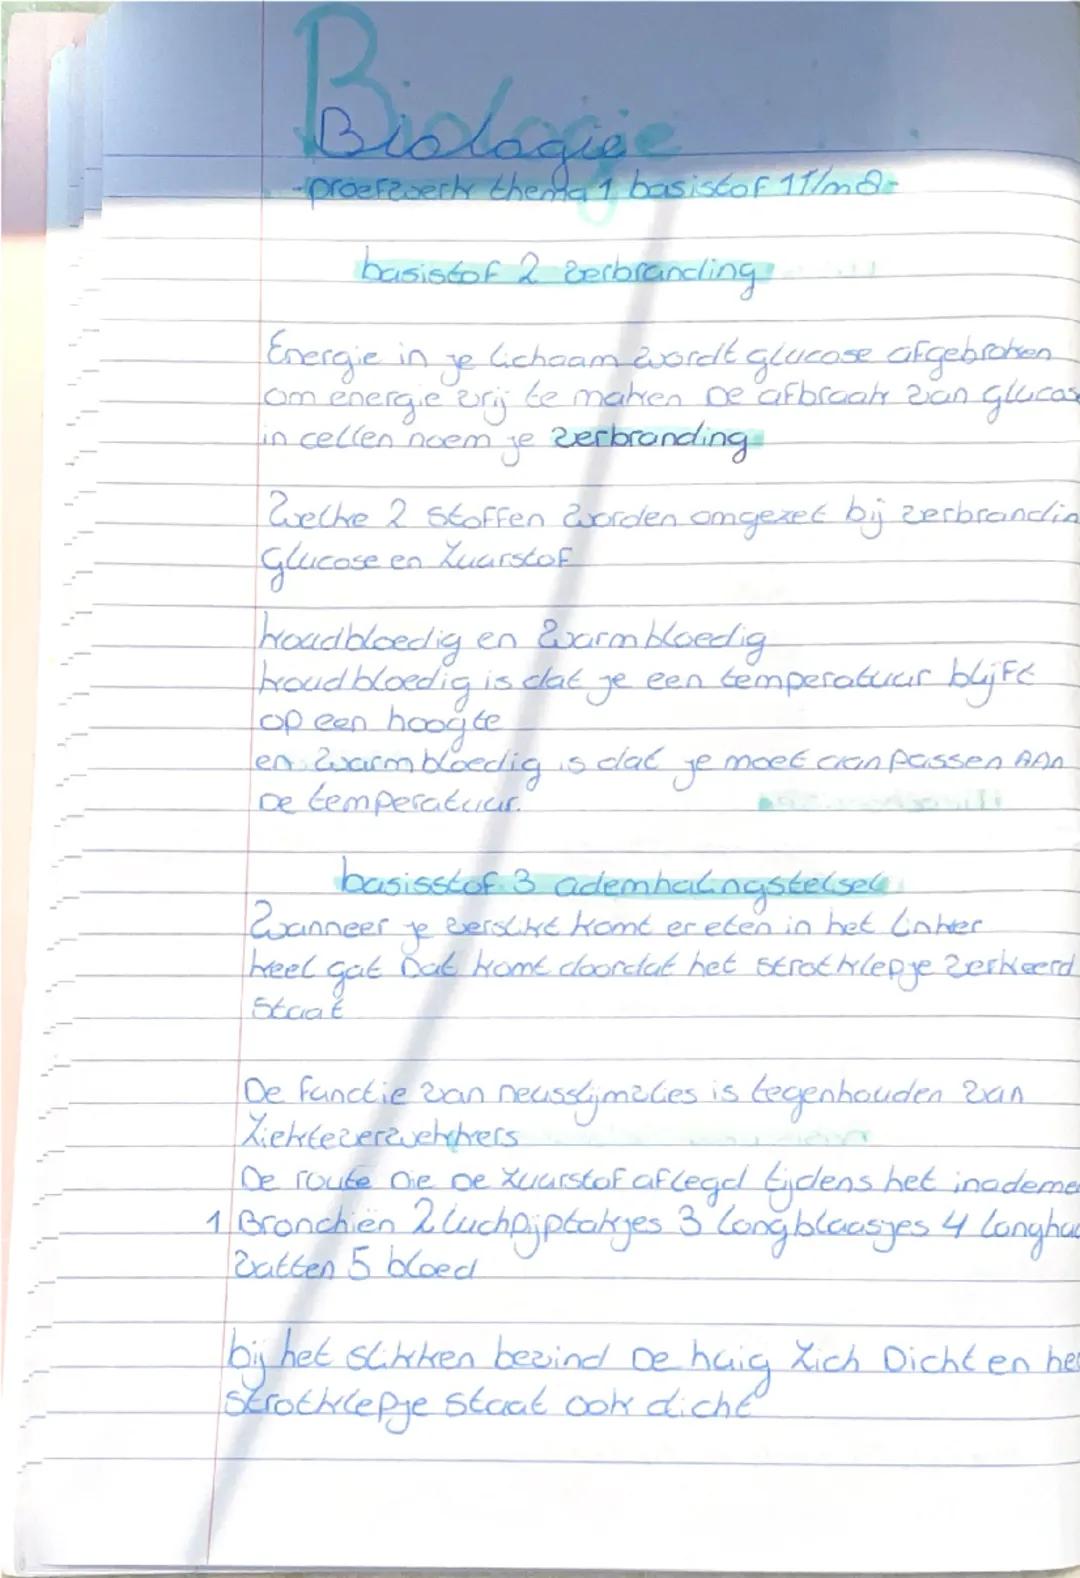 Biologie
-proefwerk thema 1 basistof 1t/m8-
basistof 2 verbranding
Energie in je lichaam wordt glucose afgebroken
om energie vrij te maken De afbraak van glucos
in cellen noem je verbranding
Welke 2 stoffen worden omgezet bij verbrandin
Glucose en zuurstof
koudbloedig en warmbloedig
koudbloedig is dat je een temperatuur blijft
op een hoogte
en warmbloedig is dat je moet aanpassen AAn
De temperatuur.
basisstof 3 ademhalingstelsel
Wanneer je verslikt komt er eten in het linker
keel gat Dat komt doordat het strotklepje verkeerd
staat
De functie van neusslijmvlies is tegenhouden van
Ziekteverwekkers
De route Die De zuurstof aflegd tijdens het inademe
1 Bronchiën 2 luchpijptakjes 3 longblaasjes 4 longhaa
vatten 5 bloed
bij het slikken bevind De huig zich Dicht en he
strotklepje staat ook dicht